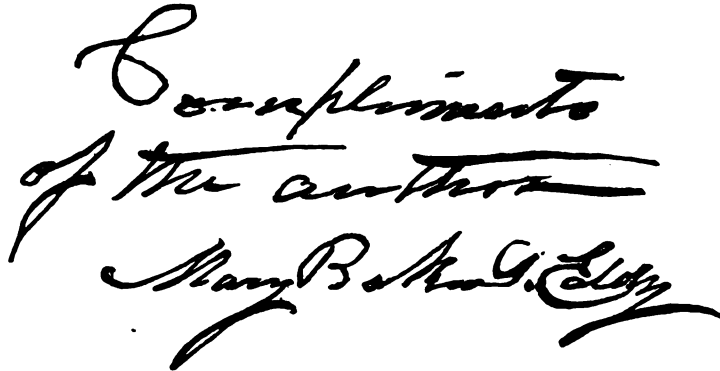 Compliments
of the author
Mary Baker G. Eddy